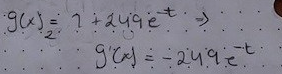 g(x)₂ = 1 + 249e^-t ⇒
g'(x) = -249e^-t